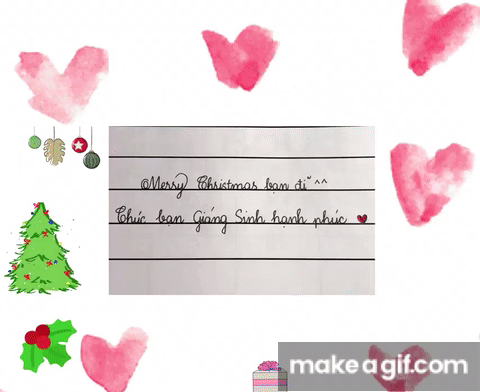 Merry Christmas bạn đĩ ^^
Chúc bạn Giáng Sinh hạnh phúc
makeagif.com